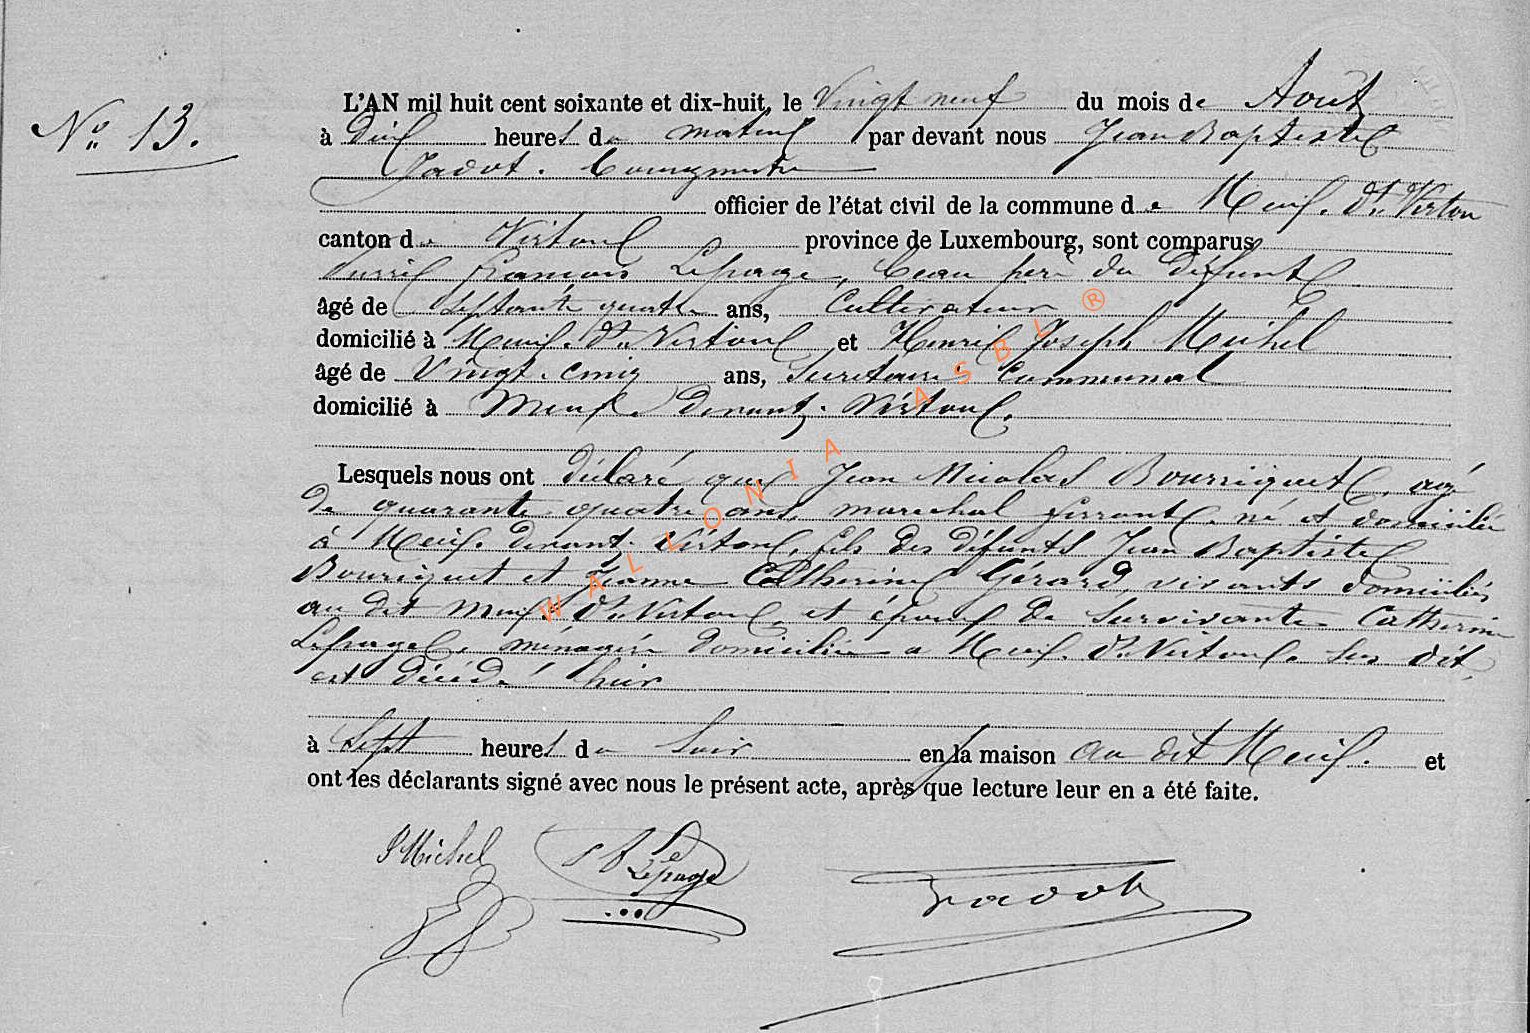 No 13.
L'AN mil huit cent soixante et dix-huit, le Vingt neuf du mois de Août
à dix heures du matin par devant nous Jean Baptiste
Jadot. Bourgmestre
officier de l'état civil de la commune de Meix. dt. Virton
canton de Virton province de Luxembourg, sont comparus
François Lepage, beau père du défunt
âgé de septante quatre ans, Cultivateur
domicilié à Meix. dt. Virton et Henri Joseph Michel
âgé de Vingt-cinq ans, Secrétaire Communal
domicilié à Meix Devant. Virton.
Lesquels nous ont déclaré que Jean Nicolas Bourriquet, agé
de quarante quatre ans, marechal ferrant, né et domicilié
à Meix Devant Virton, fils des défunts Jean Baptiste
Bourriquet et Jeanne Catherine Gérard, vivants domiciliés
au dit Meix dt. Virton, et époux de Survivante Catherine
Lepage, ménagère domiciliée a Meix. dt. Virton. Sus dit,
est décédé hier
à Sept heures du Soir en la maison au dit Meix. et
ont les déclarants signé avec nous le présent acte, après que lecture leur en a été faite.
Michel Lepage Jadot
WALLONIA ASBL ®